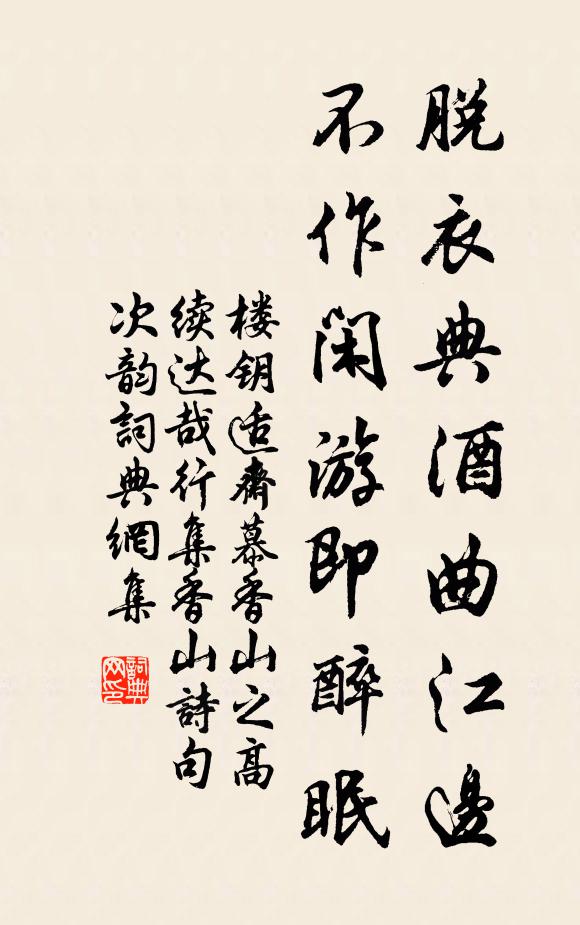 脱衣典酒曲江邊
不作閑游即醉眠
楼钥适齋慕香山之高
续达哉行集香山詩句
次韵詞典網集
詞典網印